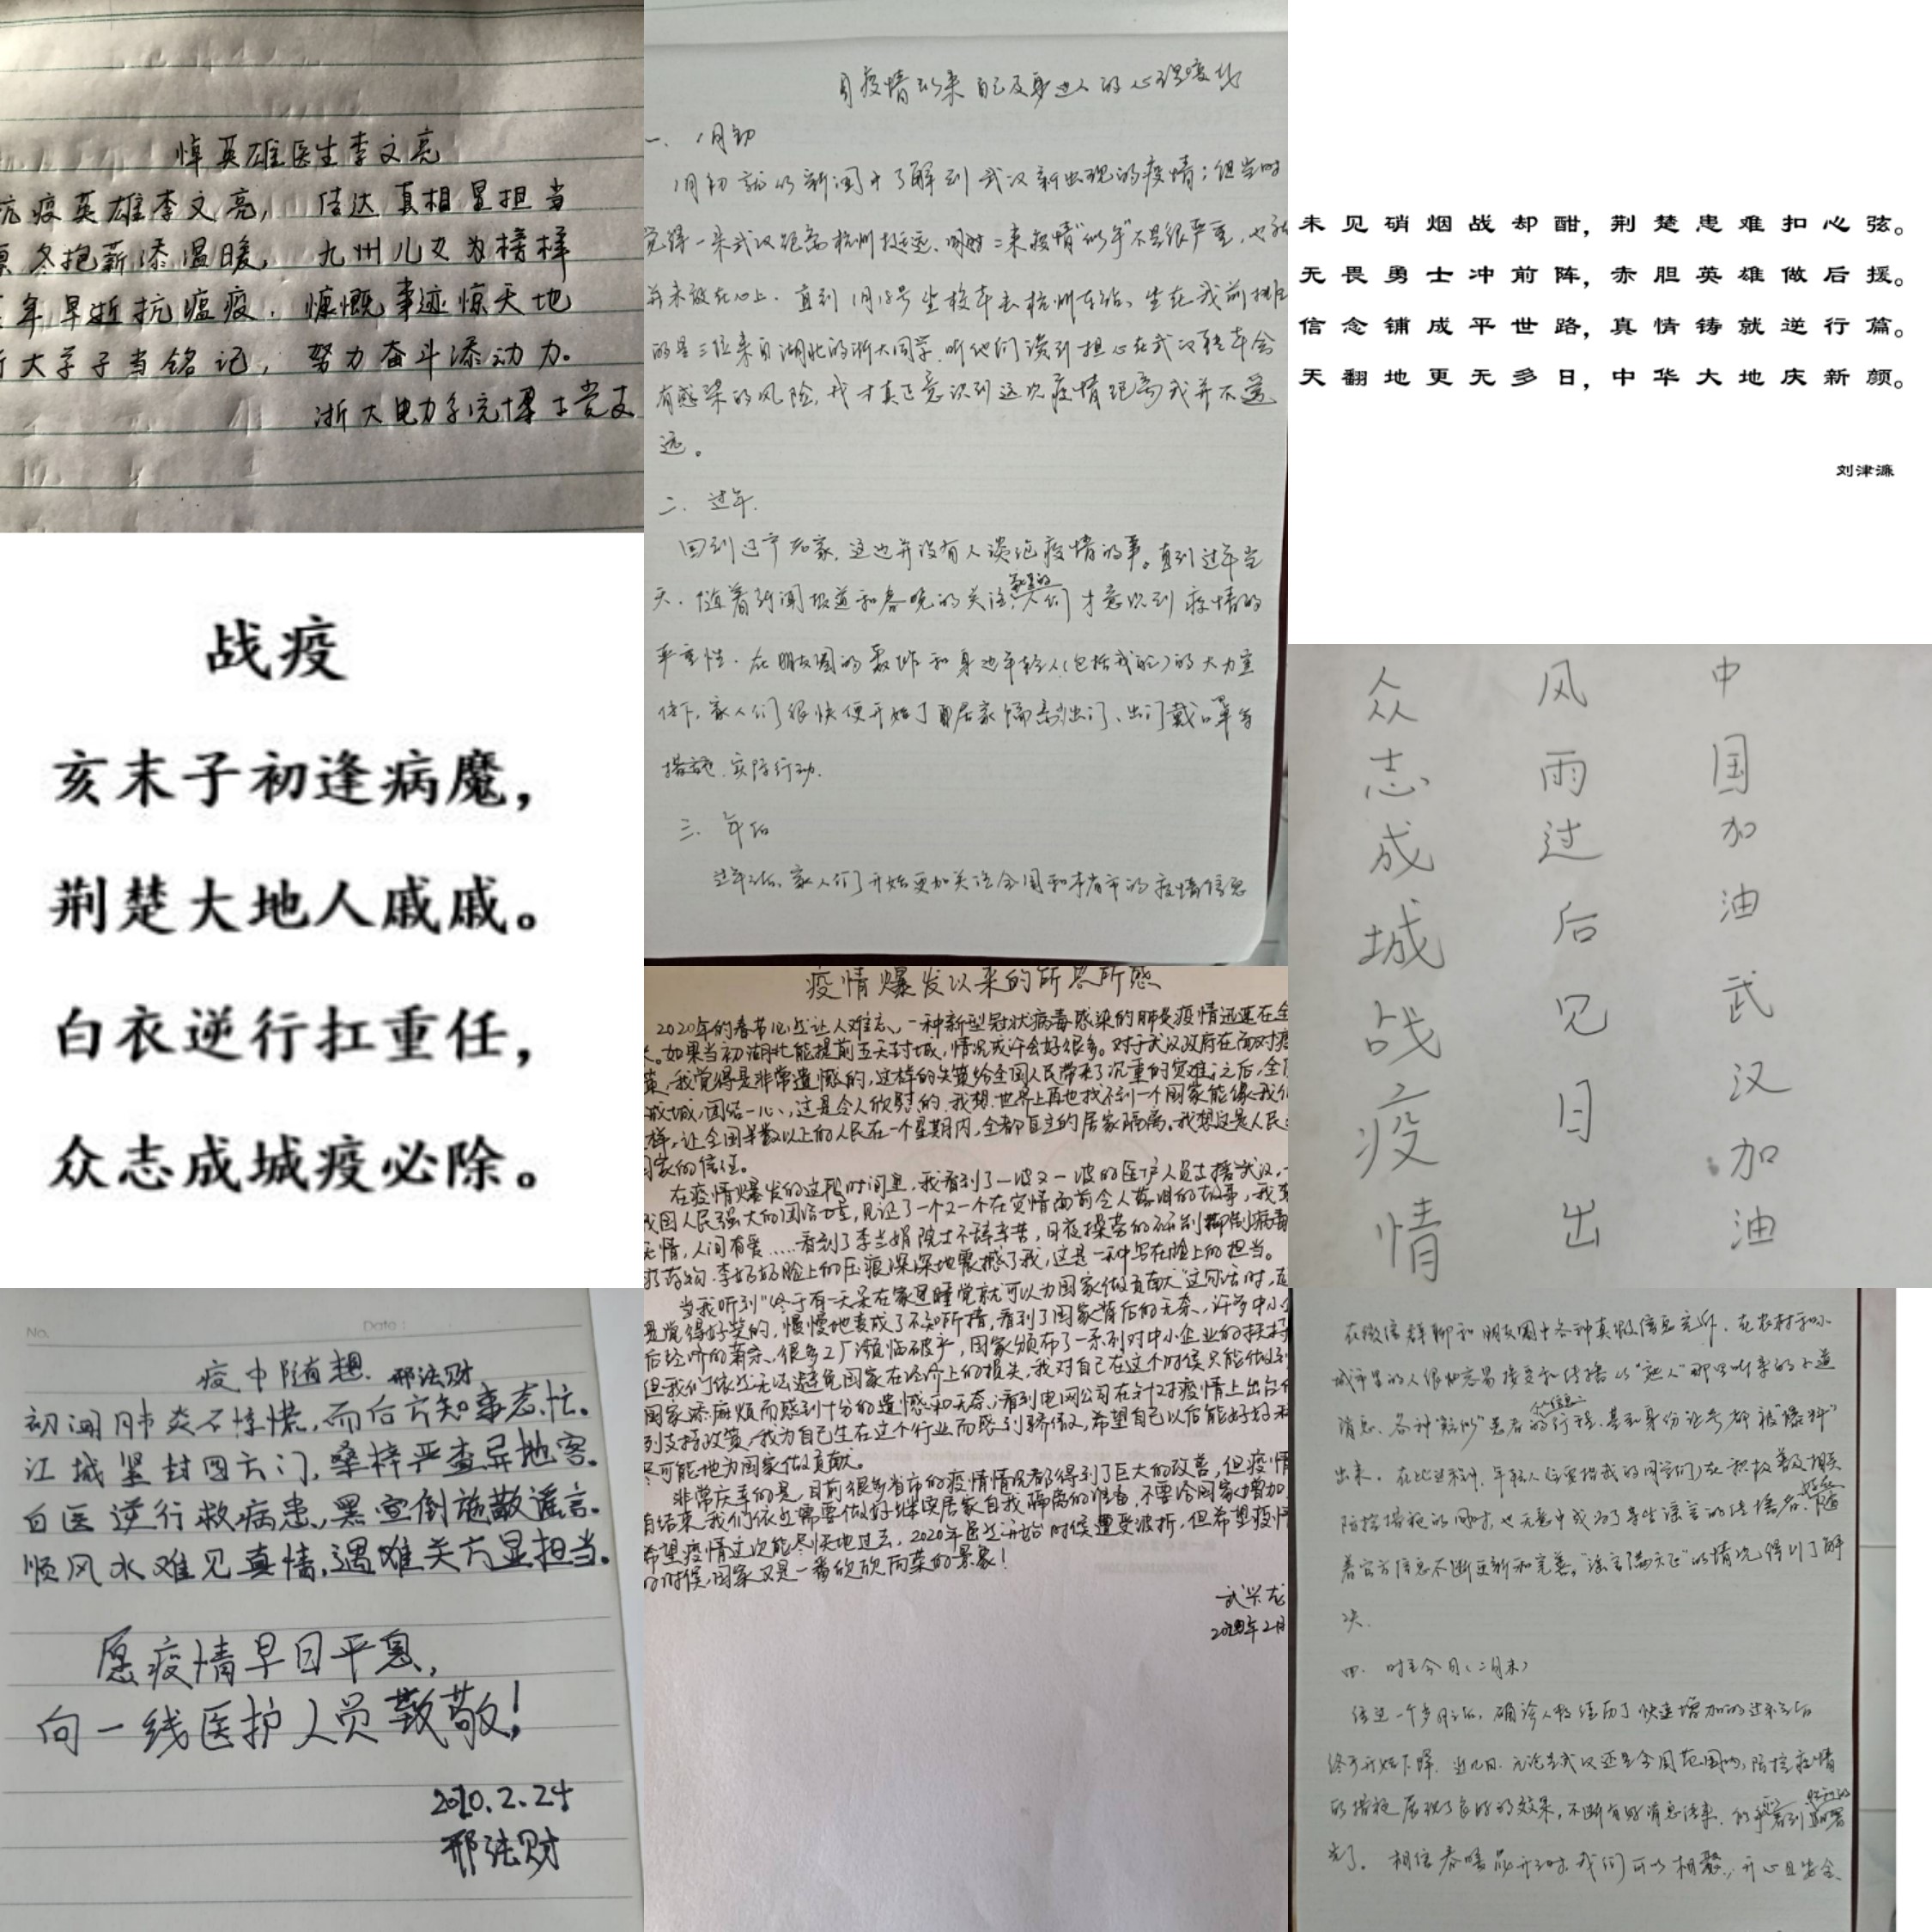 悼英雄医生李文亮
抗疫英雄李文亮， 传达真相显担当
冬抱薪添温暖， 九州儿女为榜样
年早逝抗瘟疫， 慷慨事迹惊天地
大学子当铭记， 努力奋斗添动力。
浙大电力系统博士党支
自疫情以来自己及身边人的心理变化
一、1月初
1月初就从新闻中了解到武汉新出现的疫情；但当时
觉得一来武汉距离杭州挺远、同时二来疫情“似乎”不是很严重，也就
并未放在心上。直到1月18号坐校车去杭州东站，坐在我前排
的是三位来自湖北的浙大同学，听他们谈到担心在武汉转车会
有感染的风险，我才真正意识到这次疫情距离我并不遥
远。
二、过年
回到辽宁老家，这边并没有人谈论疫情的事。直到过年当
天，随着新闻报道和春晚的关注，家里的人们才意识到疫情的
严重性。在朋友圈的轰炸和身边年轻人（包括我的）的大力宣
传下，家人们很快便开始了居家隔离、出门戴口罩等
措施、实际行动。
三、年后
过年之后，家人们开始更加关注全国和本省市的疫情信息
未见硝烟战却酣，荆楚患难扣心弦。
无畏勇士冲前阵，赤胆英雄做后援。
信念铺成平世路，真情铸就逆行篇。
天翻地更无多日，中华大地庆新颜。
刘津濂
战疫
亥末子初逢病魔，
荆楚大地人戚戚。
白衣逆行扛重任，
众志成城疫必除。
众志成城战疫情
风雨过后见日出
中国加油武汉加油
疫情爆发以来的所思所感
2020年的春节必然让人难忘，一种新型冠状病毒感染的肺炎疫情迅速在全
。如果当初湖北能提前五天封城，情况或许会好很多。对于武汉政府在面对疫
策，我觉得是非常遗憾的，这样的失策给全国人民带来了沉重的灾难；之后，全国
成城，团结一心，这是令人欣慰的，我想，世界上再也找不到一个国家能像我们
样，让全国半数以上的人民在一个星期内，全都自主的居家隔离。我想这是人民
国家的信任。
在疫情爆发的这段时间里，我看到了一波又一波的医护人员支援武汉，
我国人民强大的团结力量，见证了一个又一个在灾情面前令人落泪的故事，我
无情，人间有爱……看到了李兰娟院士不辞辛苦，日夜操劳的研制抑制病毒
的药物，李奶奶脸上的压痕深深地震撼了我，这是一种写在脸上的担当。
当我听到“终于有一天呆在家里睡觉就可以为国家做贡献”这句话时，
是觉得好笑的，慢慢地变成了不知所措，看到了国家背后的无奈，许多中小
后经济的萧条，很多工厂濒临破产，国家颁布了一系列对中小企业的扶持
但我们依然无法避免国家在经济上的损失，我对自己在这个时候只能做到
国家添麻烦而感到十分的遗憾和无奈；看到电网公司在针对疫情上出台
列支持政策，我为自己生在这个行业而感到骄傲，希望自己以后能好好
尽可能地为国家做贡献。
非常庆幸的是，目前很多省市的疫情情况都得到了巨大的改善，但疫情
有结束，我们依然需要做好继续居家自我隔离的准备，不要给国家增加
希望疫情这次能尽快地过去，2020年虽然开始时候遭受波折，但希望疫情
的时候，国家又是一番欣欣向荣的景象！
武兴龙
2020年2月
No. Date:
疫中随想 邢法财
初闻肺炎不惊慌，而后方知事态忙。
江城紧封四方门，桑梓严查异地客。
白医逆行救病患，黑宣倒施散谣言。
顺风水难见真情，遇难关方显担当。
愿疫情早日平息，
向一线医护人员致敬！
2020.2.24
邢法财
在微信群聊和朋友圈中各种真假信息充斥，在农村和小
城市里的人很容易接受和传播从“熟人”那里听来的小道
消息，各种“疑似”患者的个人信息、行程、甚至身份证号都被“爆料”
出来。在此过程中，年轻人（主要指我的同学们）在积极普及相关
防控措施的同时，也无意中成为了某些谣言的传播者。
着官方信息不断更新和完善，“谣言满天飞”的情况得到了解
决。
四、时至今日（二月末）
经过一个多月之后，确诊人数经历了快速增加的过程之后
终于开始下降。近几日，无论是武汉还是全国范围内，防控疫情
的措施展现了良好的效果，不断有好消息传来，
光了。相信春暖花开时，我们可以相聚，开心且安全。